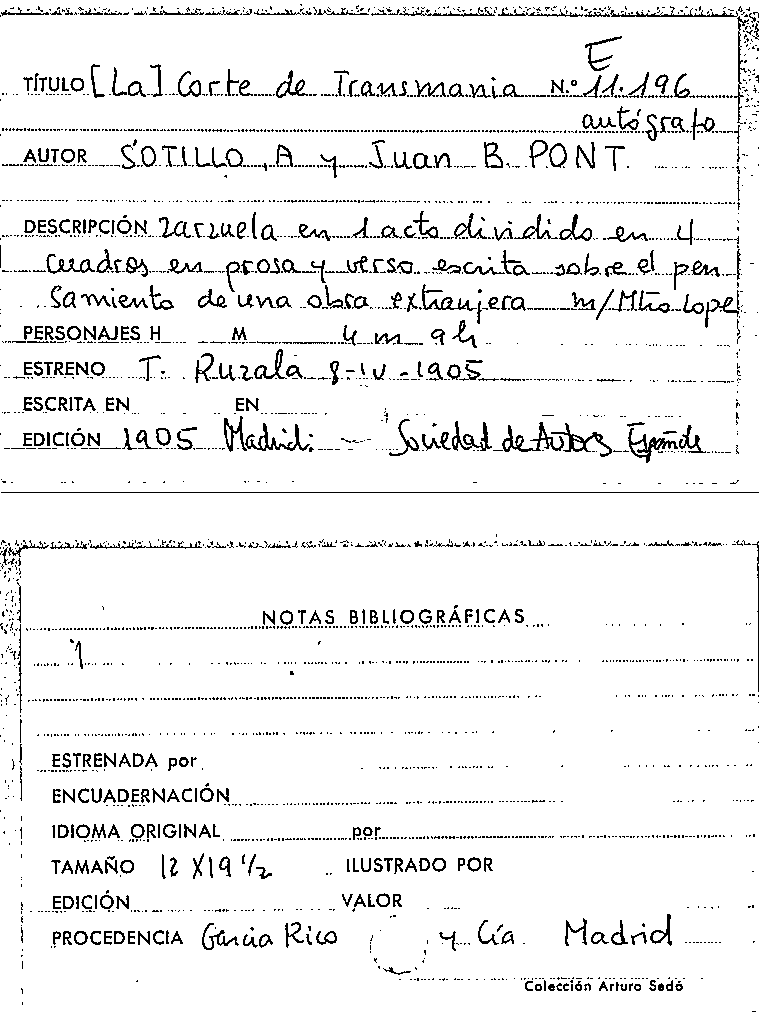 E
TÍTULO [La] Corte de Transmania N.º 11.196
autógrafo
AUTOR SOTILLO, A y Juan B. PONT.
DESCRIPCIÓN zarzuela en 1 acto dividido en 4
cuadros en prosa y verso escrita sobre el pen
samiento de una obra extranjera m/Mtro Lope
PERSONAJES H M 4 m 9 h
ESTRENO T. Ruzafa 8-IV-1905
ESCRITA EN EN
EDICIÓN 1905 Madrid: — Sociedad de Autores Españole
NOTAS BIBLIOGRÁFICAS
1
ESTRENADA por
ENCUADERNACIÓN
IDIOMA ORIGINAL por
TAMAÑO 12 X 19 1/2 ILUSTRADO POR
EDICIÓN VALOR
PROCEDENCIA Garcia Rico y Cía. Madrid
Colección Arturo Sedó